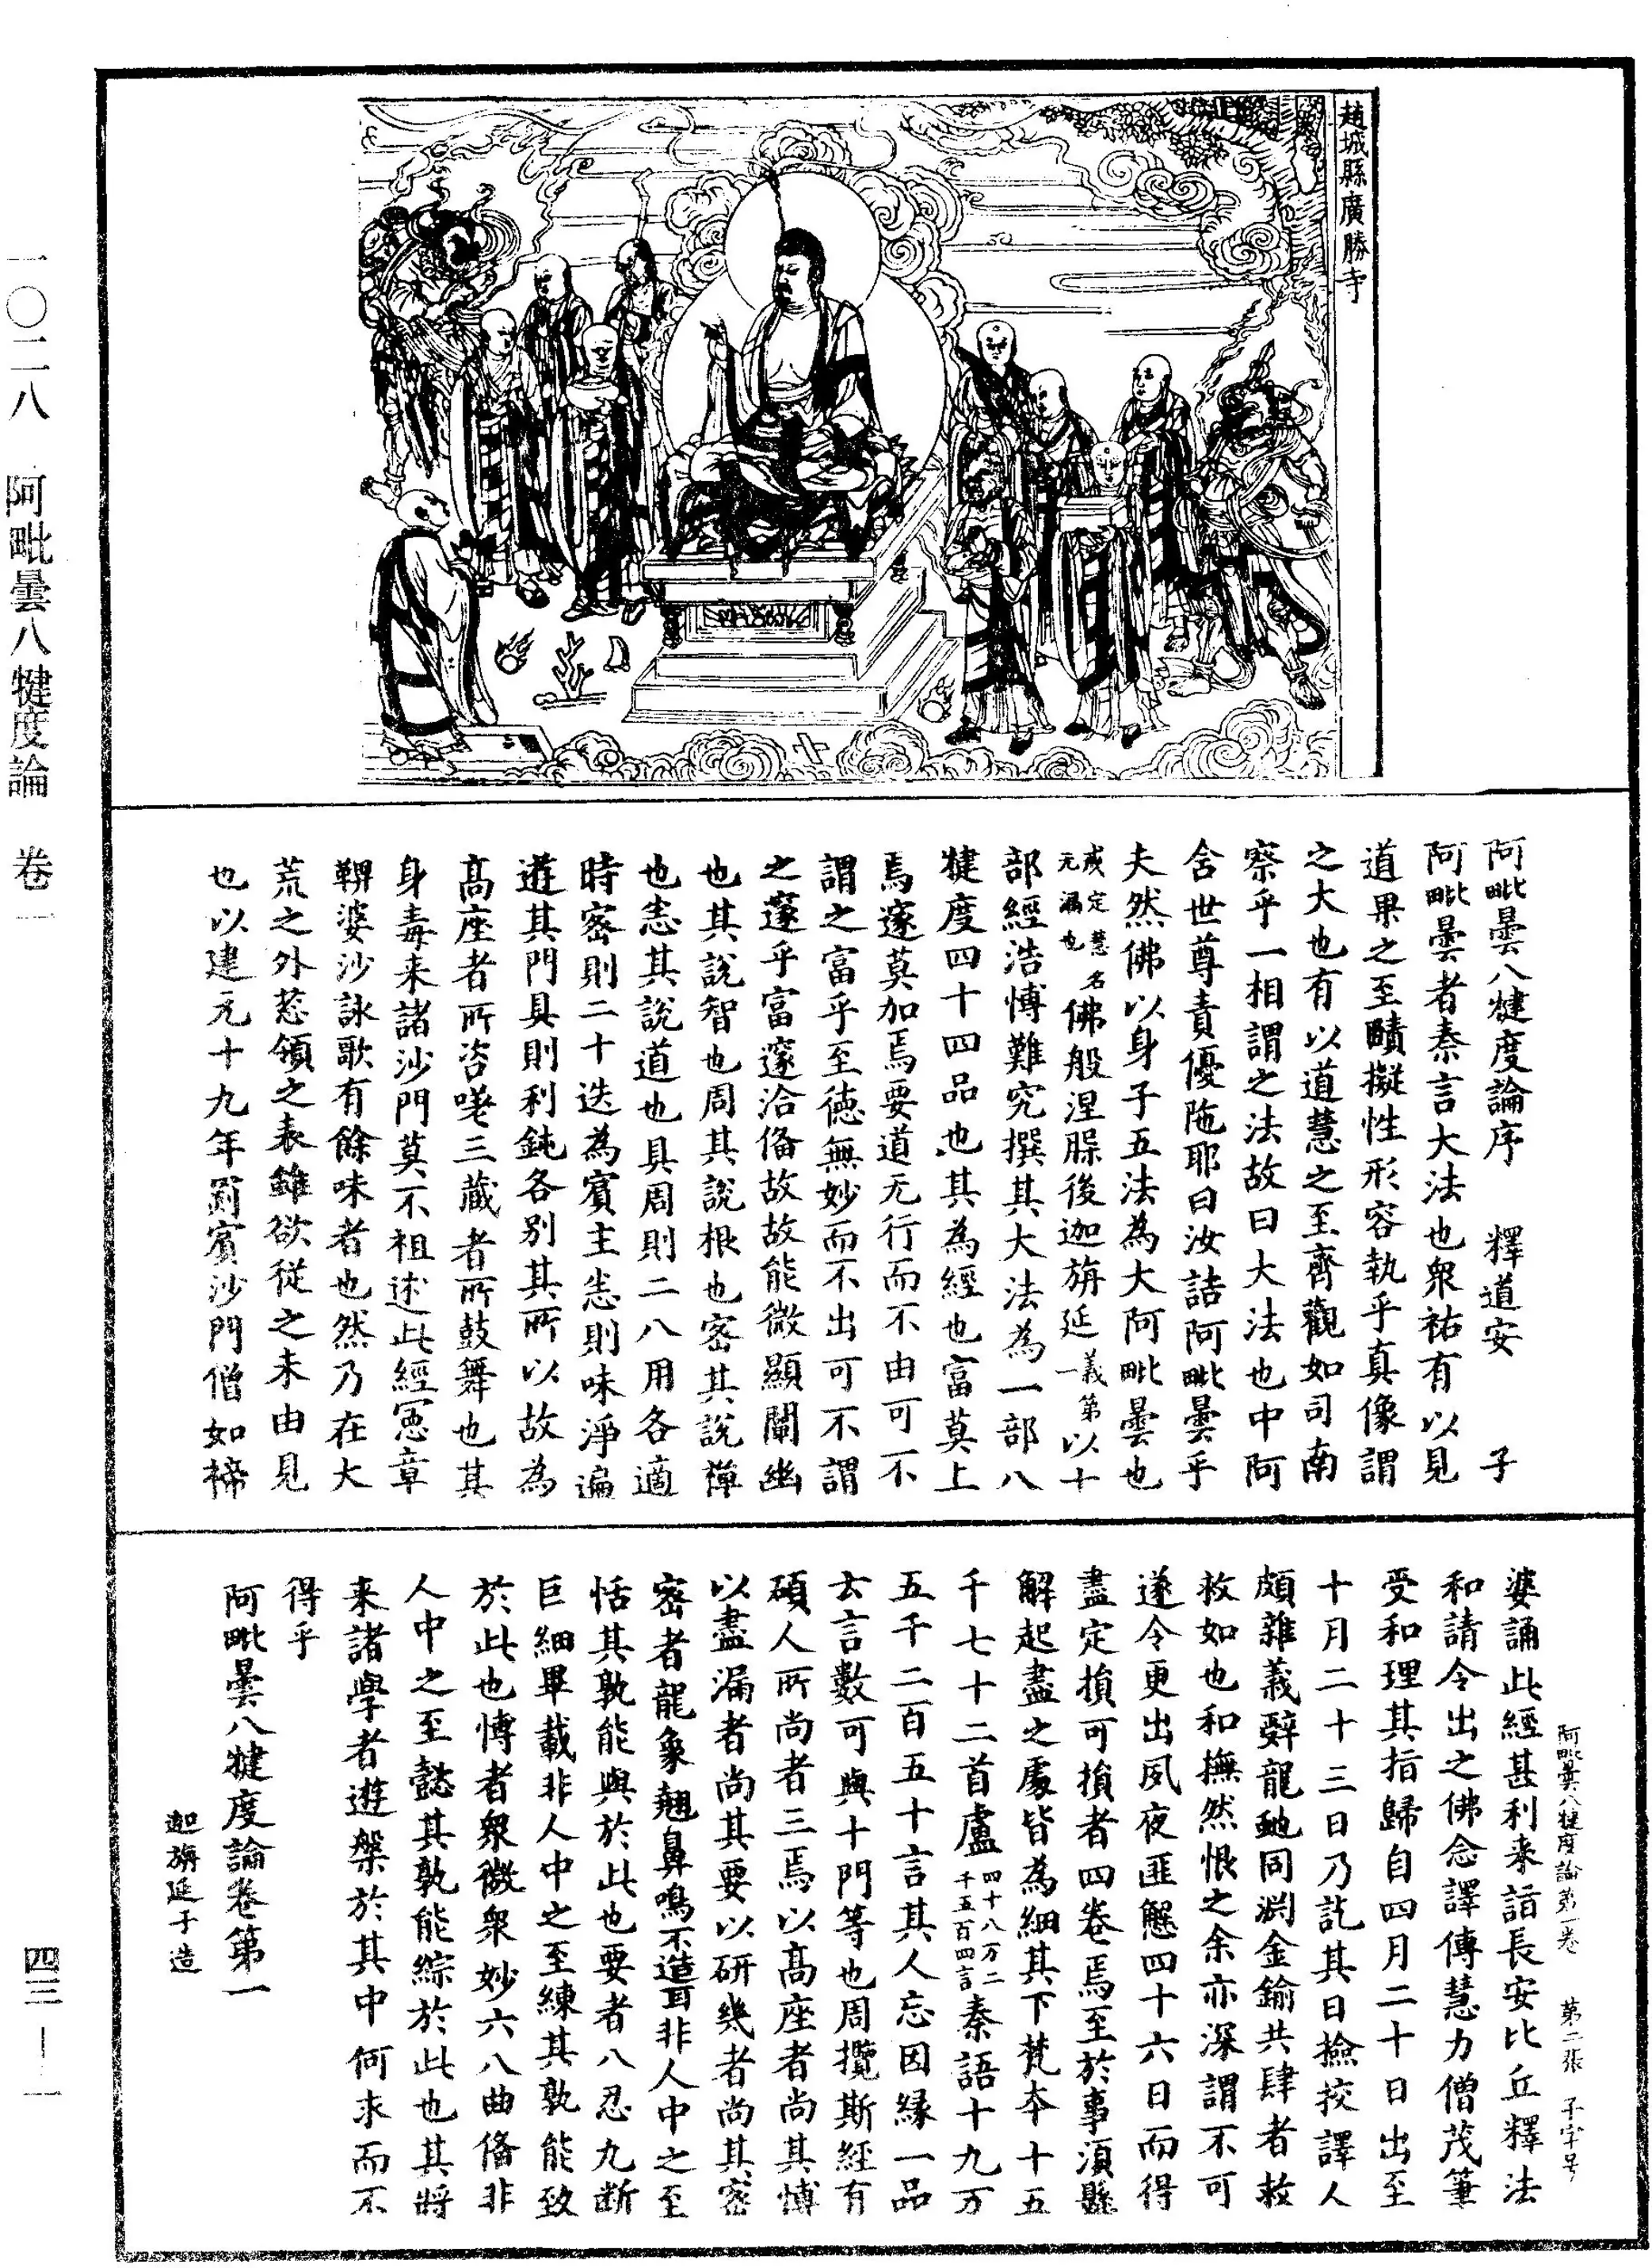 趙城縣廣勝寺
阿毗曇八犍度論序　釋道安　子
阿毗曇者秦言大法也衆祐有以見
道果之至賾擬性形容執乎真像謂
之大也有以道慧之至齊觀如司南
察乎一相謂之法故曰大法也中阿
含世尊責優陁耶曰汝詰阿毗曇乎
夫然佛以身子五法為大阿毗曇也
戒定慧名无漏也佛般涅槃後迦旃延一義第以十
部經浩博難究撰其大法為一部八
犍度四十四品也其為經也富莫上
焉邃莫加焉要道无行而不由可不
謂之富乎至德無妙而不出可不謂
之邃乎富邃洽俻故故能微顯闡幽
也其說智也周其說根也密其說禪
也悉其說道也具周則二八用各適
時密則二十迭為賓主悉則味淨遍
遊其門具則利鈍各別其所以故為
高座者所咨嗟三藏者所鼓舞也其
身毒来諸沙門莫不祖述此經憲章
鞞婆沙詠歌有餘味者也然乃在大
荒之外葱領之表雖欲從之未由見
也以建元十九年罽賓沙門僧如褅
阿毗曇八犍度論第一卷　第二張　子字号
婆誦此經甚利来詣長安比丘釋法
和請令出之佛念譯傳慧力僧茂筆
受和理其指歸自四月二十日出至
十月二十三日乃訖其日撿挍譯人
頗雜義辤龍虵同淵金鍮共肆者救
救如也和撫然恨之余亦深謂不可
遂令更出夙夜匪懈四十六日而得
盡定損可損者四卷焉至於事須懸
解起盡之處皆為細其下梵夲十五
千七十二首盧四十八万二千五百四言秦語十九万
五千二百五十言其人忘因緣一品
去言數可與十門等也周攬斯經有
碩人所尚者三焉以高座者尚其博
以盡漏者尚其要以研幾者尚其密
密者龍象翹鼻鳴不造耳非人中之至
恬其孰能與於此也要者八忍九断
巨細畢載非人中之至練其孰能致
於此也博者衆微衆妙六八曲俻非
人中之至懿其孰能綜於此也其將
来諸學者遊槃於其中何求而不
得乎
阿毗曇八犍度論卷第一
迦旃延子造
一〇二八　阿毗曇八犍度論　卷一
四三—一